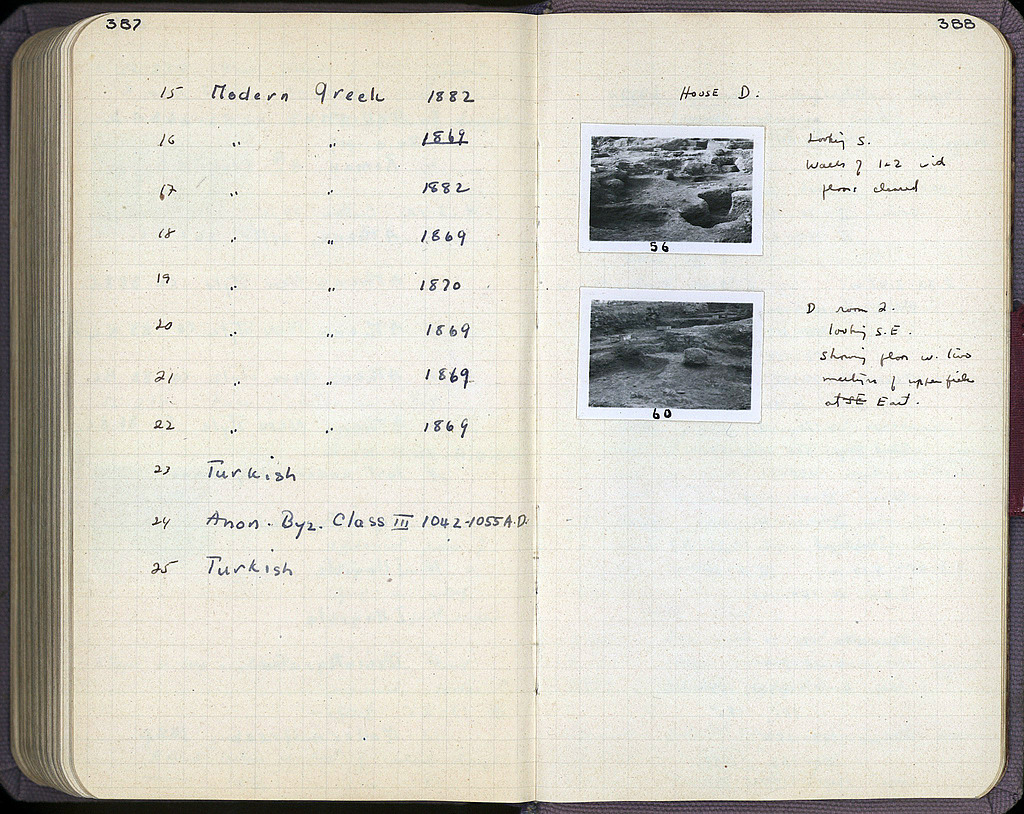 387
15 Modern Greek 1882
16 " " 1869
17 " " 1882
18 " " 1869
19 " " 1870
20 " " 1869
21 " " 1869
22 " " 1869
23 Turkish
24 Anon. Byz. Class III 1042-1055 A.D.
25 Turkish
388
HOUSE D:
Looking S.
Walls of 1+2
floors cleared
56
D room 2.
looking S.E.
showing floor w. two
of upper
at SE East.
60